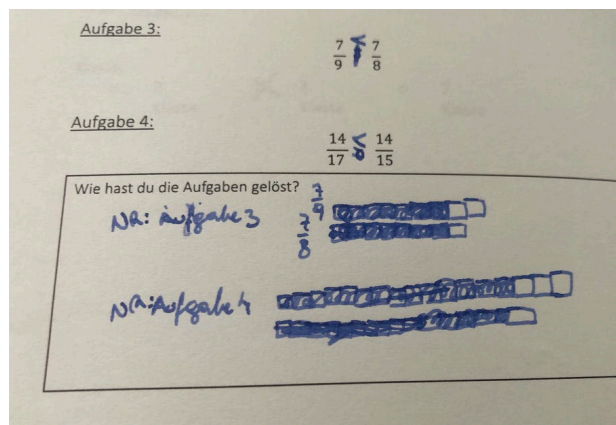 Aufgabe 3:
7/9 < 7/8
Aufgabe 4:
14/17 < 14/15
Wie hast du die Aufgaben gelöst?
NR: Aufgabe 3
7/9
7/8
NR: Aufgabe 4